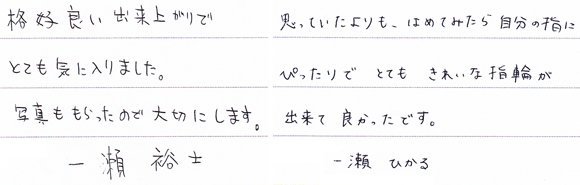 格好良い出来上がりで
とても気に入りました。
写真ももらったので大切にします。
一瀬 裕士
思っていたよりも、はめてみたら自分の指に
ぴったりで とても きれいな指輪が
出来て 良かったです。
一瀬 ひかる